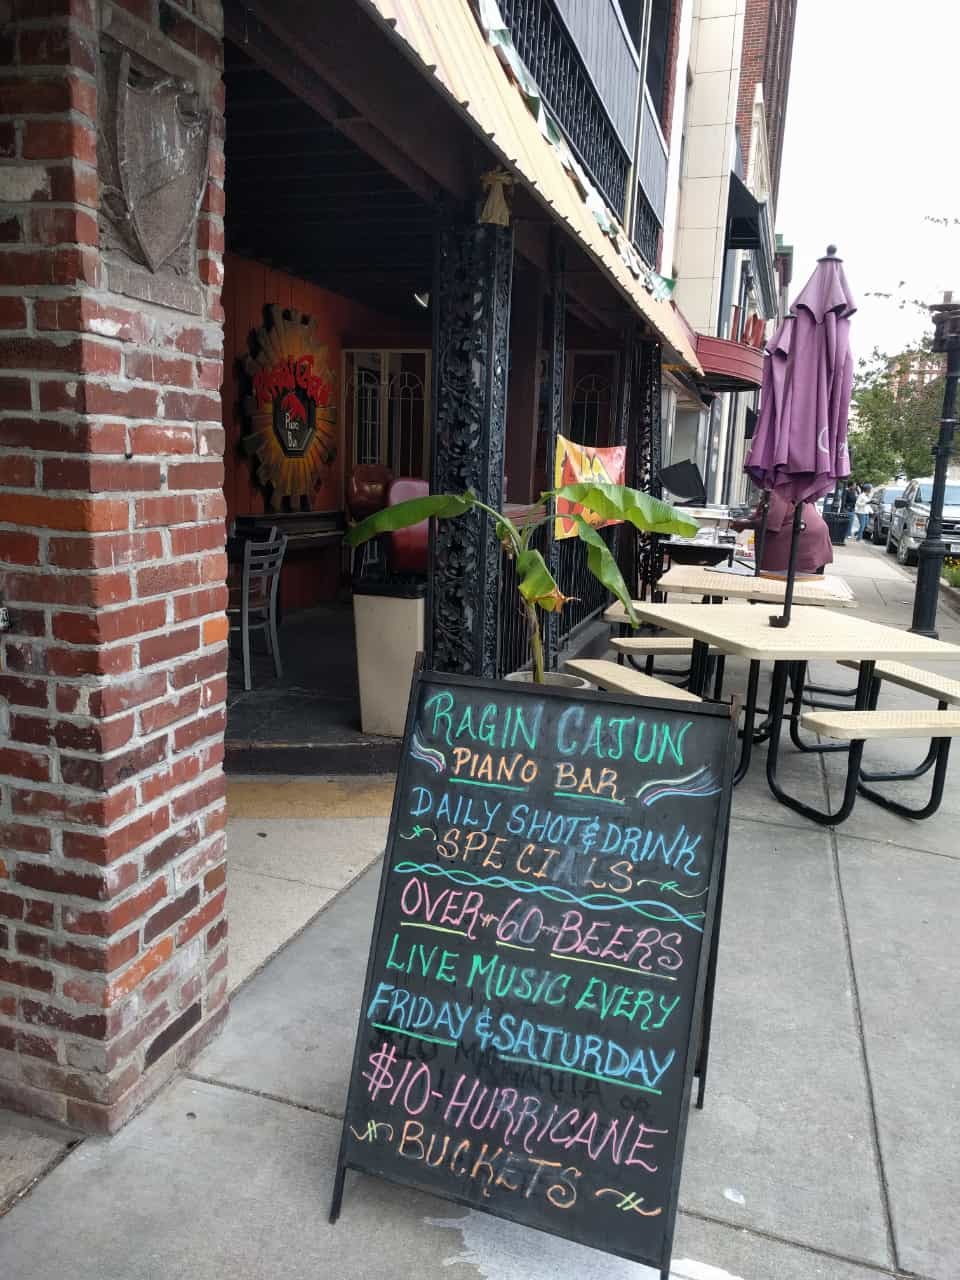 RAGIN CAJUN
PIANO BAR
DAILY SHOT & DRINK
SPECIALS
OVER 60 BEERS
LIVE MUSIC EVERY
FRIDAY & SATURDAY
$10-HURRICANE
BUCKETS
PIANO
BAR